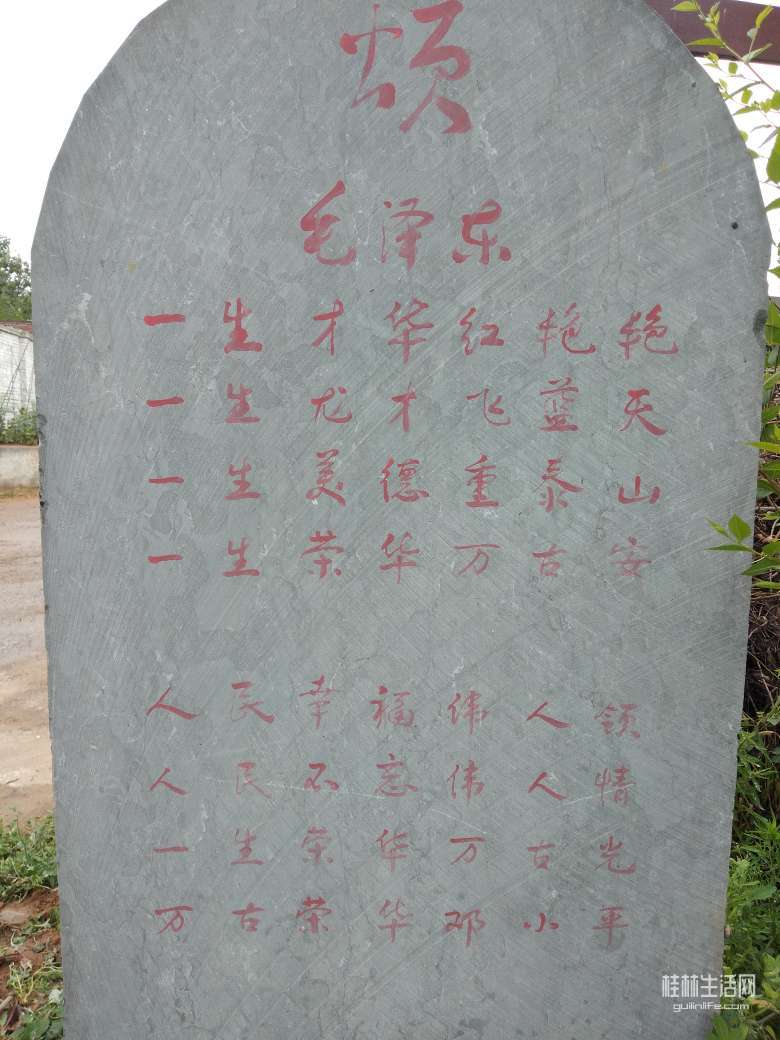 颂
毛泽东
一生才华红艳艳
一生龙才飞蓝天
一生美德重泰山
一生荣华万古安
人民幸福伟人领
人民不忘伟人情
一生荣华万古光
万古荣华邓小平
桂林生活网
guilinlife.com